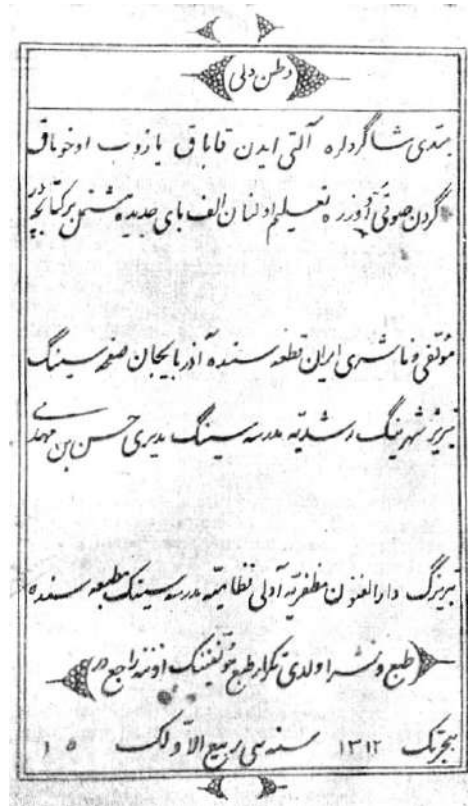 وطن دلی
مبتدی شاگردلره آلتی ایدن قاباق یازوب اوخوماق
اوزره تعلیم اولنان الف بای جدیده مشتمل بر کتابچه
مؤلفی و ناشری ایران قطعه سنده آذربایجان صفحه سینگ
تبریز شهرینگ رشدیّه مدرسه سینگ مدیری حسن بن مهدی
تبریزنگ دارالفنون مظفریّه آدلی نظامیّه مدرسه سینک مطبعه سنده
طبع و نشر اولدی تکرار طبع مؤلفننگ اوزینه راجع در
هجرتک ۱۳۱۲ سنه سی ربیع الاوّلک ۱۵